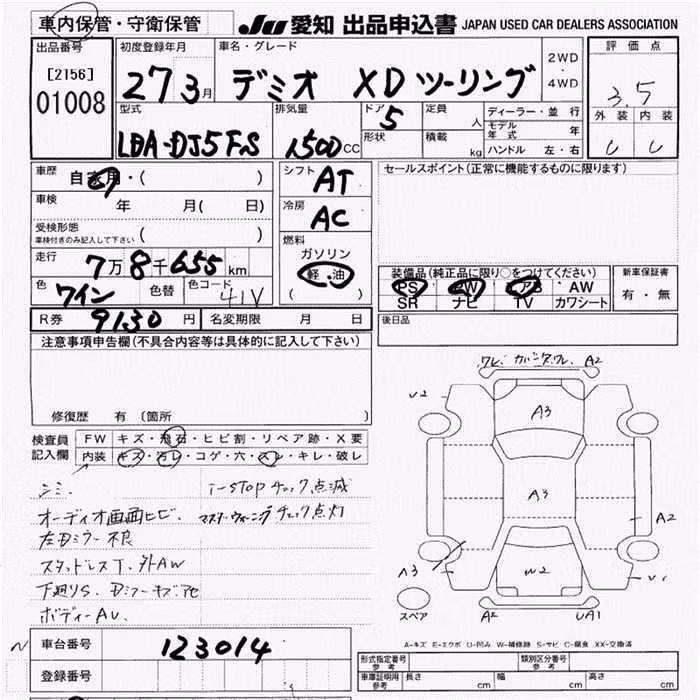 車内保管・守衛保管 JU 愛知 出品申込書 JAPAN USED CAR DEALERS ASSOCIATION
出品番号 初度登録年月 車名・グレード 2WD・4WD 評価点
[2156] 01008 27 3月 デミオ XDツーリング 3.5
型式 排気量 ドア 5 定員 人 ディーラー・並行 外装 内装
モデル年式 年
LDA-DJ5FS 1500CC 形状 積載 kg ハンドル 左・右 C C
車歴 自家用・( ) シフト AT セールスポイント(正常に機能するものに限ります)
車検 年 月( 日) 冷房 AC
受検形態 車検付きのみ記入して下さい ( ) 燃料 ガソリン
走行 7万8千655km 軽・油 ( )
装備品(純正品に限り○をつけてください) 新車保証書
PS PW アB AW 有・無
色 ワイン 色替 色コード 41V
SR ナビ TV カワシート
R券 9130円 名変期限 月 日 後日品
注意事項申告欄(不具合内容等は具体的に記入して下さい)
修復歴 有(箇所
検査員記入欄 FW キズ・飛石・ヒビ割・リペア跡・X要
内装 キズ・汚レ・コゲ・穴・スレ・キレ・破レ
シミ、 i-STOPチェック点滅
オーディオ画面ヒビ、マスターウォーニングチェック点灯
左Dミラー不良
スタッドレスT、外AW
下廻りS、
ボディーAU、
ワレ A2
U2
A3
A3
A2
A3 W2
スペア A2 UA1
A-キズ E-エクボ U-凹み W-補修跡 S-サビ C-腐食 XX-交換済
車台番号 123014
登録番号
形式指定番号 参考 類別区分番号 参考
車庫証明用 参考 長さ cm 幅 cm 高さ cm